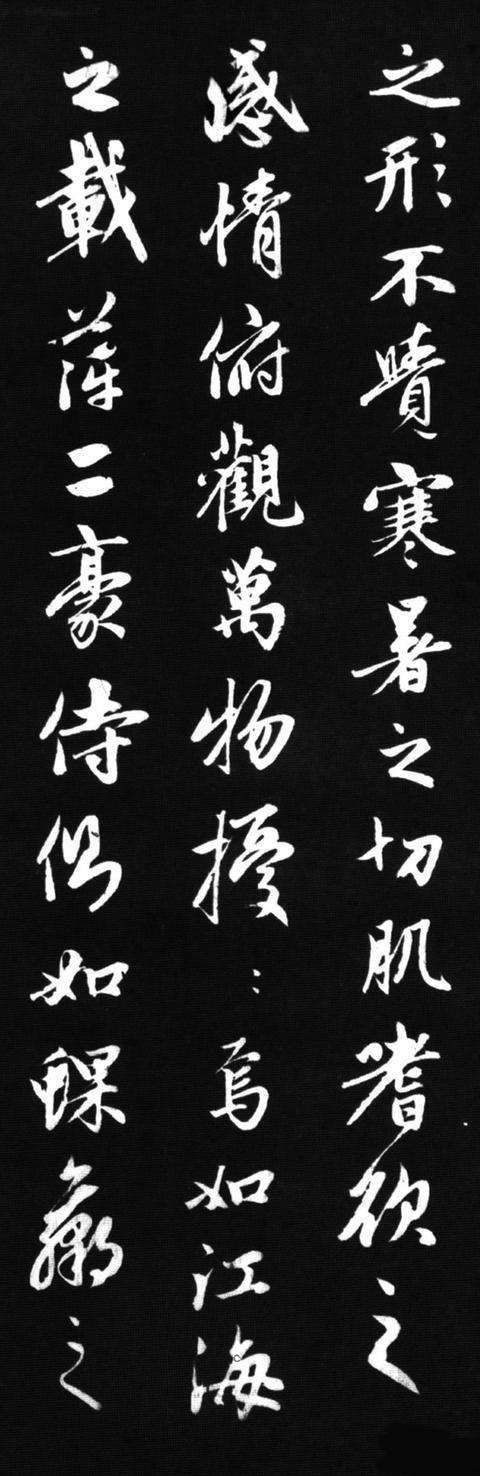 之形不覺寒暑之切肌嗜欲之
感情俯觀萬物擾〻焉如江海
之載萍二豪侍側如蜾蠃之